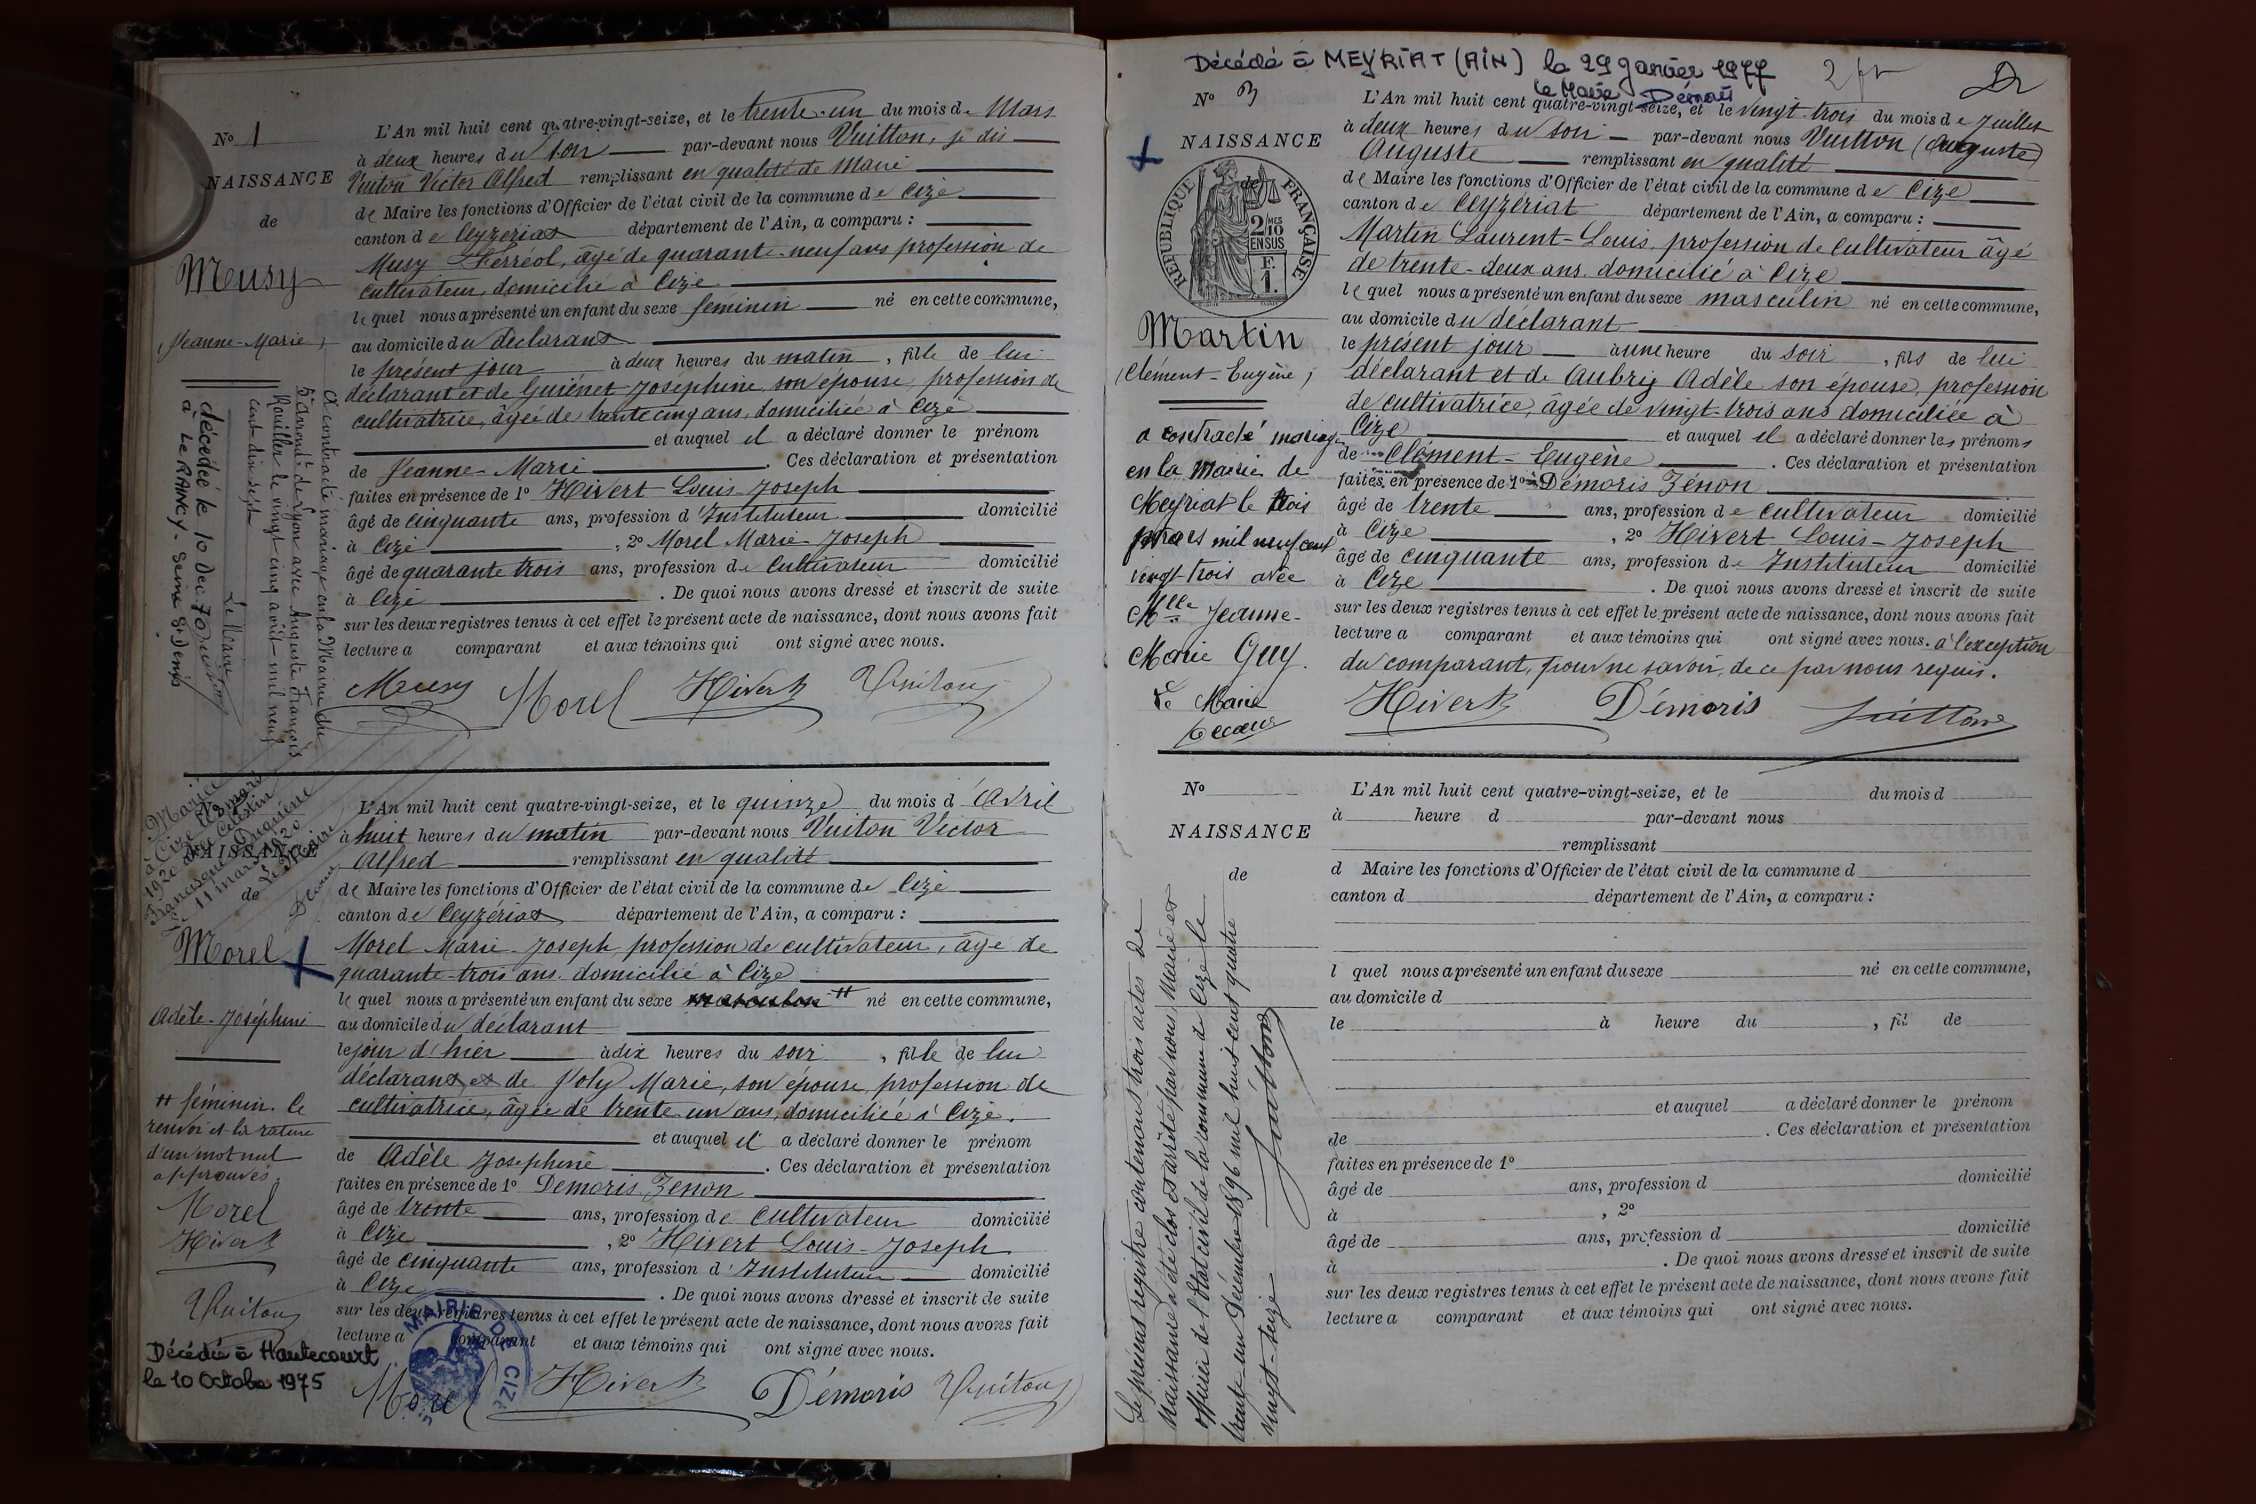 N° 1
NAISSANCE
de
Meusy
Jeanne-Marie
L'An mil huit cent quatre-vingt-seize, et le trente-un du mois de Mars
à deux heures du soir par-devant nous Vuitton, je dis
Vuiton Victor Alfred remplissant en qualité de Maire
de Maire les fonctions d'Officier de l'état civil de la commune de Cize
canton de Ceyzériat département de l'Ain, a comparu :
Meusy Ferréol, âgé de quarante-neuf ans profession de
cultivateur, domicilié à Cize
lequel nous a présenté un enfant du sexe feminin né en cette commune,
au domicile du déclarant
le présent jour à deux heures du matin, fille de lui
déclarant et de Guienet Josephine son épouse, profession de
cultivatrice, âgée de trente cinq ans, domiciliée à Cize
et auquel il a déclaré donner le prénom
de Jeanne-Marie . Ces déclaration et présentation
faites en présence de 1° Hivert Louis-Joseph
âgé de cinquante ans, profession d'Instituteur domicilié
à Cize , 2° Morel Marie-Joseph
âgé de quarante trois ans, profession de Cultivateur domicilié
à Cize . De quoi nous avons dressé et inscrit de suite
sur les deux registres tenus à cet effet le présent acte de naissance, dont nous avons fait
lecture a comparant et aux témoins qui ont signé avec nous.
Meusy Morel Hivert Vuiton
A contracté mariage en la Mairie du
5e Arrondt de Lyon avec Auguste François
Rouiller le vingt cinq août mil neuf
cent dix sept
Le Maire
décédée le 10 Dec 70
à Le RAINCY - Seine St Denis
NAISSANCE
de
Morel
Adèle-Joséphine
Le Maire
L'An mil huit cent quatre-vingt-seize, et le quinze du mois d'Avril
à huit heures du matin par-devant nous Vuiton Victor
Alfred remplissant en qualité
de Maire les fonctions d'Officier de l'état civil de la commune de Cize
canton de Ceyzériat département de l'Ain, a comparu :
Morel Marie-Joseph, profession de cultivateur, âgé de
quarante-trois ans domicilié à Cize
lequel nous a présenté un enfant du sexe masculin # né en cette commune,
au domicile du déclarant
le jour d'hier à dix heures du soir, fille de lui
déclarant et de Joly Marie, son épouse, profession de
cultivatrice, âgée de trente un ans, domiciliée à Cize.
et auquel il a déclaré donner le prénom
de Adèle Josephine . Ces déclaration et présentation
faites en présence de 1° Demoris Zénon
âgé de trente ans, profession de Cultivateur domicilié
à Cize , 2° Hivert Louis-Joseph
âgé de cinquante ans, profession d'Instituteur domicilié
à Cize . De quoi nous avons dressé et inscrit de suite
sur les deux registres tenus à cet effet le présent acte de naissance, dont nous avons fait
lecture a comparant et aux témoins qui ont signé avec nous.
MAIRIE DE CIZE
Morel Hivert Démoris Vuiton
# féminin. Ce
renvoi et la rature
d'un mot nul
approuvés.
Morel
Hivert
Vuiton
Décédée à Hautecourt
le 10 Octobre 1975
Décédé à MEYRIAT (AIN) le 29 janvier 1977
Le Maire
N° 3
NAISSANCE
de
RÉPUBLIQUE FRANÇAISE
2 MES
10
EN SUS
F.
1.
Martin
Clément-Eugène
L'An mil huit cent quatre-vingt-seize, et le vingt-trois du mois de Juillet
à deux heures du soir par-devant nous Vuitton (Auguste)
Auguste remplissant en qualité
de Maire les fonctions d'Officier de l'état civil de la commune de Cize
canton de Ceyzériat département de l'Ain, a comparu :
Martin Laurent-Louis, profession de cultivateur âgé
de trente-deux ans domicilié à Cize
lequel nous a présenté un enfant du sexe masculin né en cette commune,
au domicile du déclarant
le présent jour à une heure du soir, fils de lui
déclarant et de Aubry Adèle son épouse, profession
de cultivatrice, âgée de vingt-trois ans domiciliée à
Cize et auquel il a déclaré donner les prénoms
de Clément-Eugène . Ces déclaration et présentation
faites en présence de 1° Démoris Zénon
âgé de trente ans, profession de cultivateur domicilié
à Cize , 2° Hivert Louis-Joseph
âgé de cinquante ans, profession d'Instituteur domicilié
à Cize . De quoi nous avons dressé et inscrit de suite
sur les deux registres tenus à cet effet le présent acte de naissance, dont nous avons fait
lecture a comparant et aux témoins qui ont signé avec nous. à l'exception
du comparant, pour ne savoir, de ce par nous requis.
Hivert Démoris Vuitton
a contracté mariage
en la Mairie de
Meyriat le trois
mars mil neuf cent
vingt-trois avec
Mlle Jeanne-
Marie Guy.
Le Maire
N°
NAISSANCE
de
L'An mil huit cent quatre-vingt-seize, et le du mois d
à heure d par-devant nous
remplissant
d Maire les fonctions d'Officier de l'état civil de la commune d
canton d département de l'Ain, a comparu :
l quel nous a présenté un enfant du sexe né en cette commune,
au domicile d
le à heure du , fil de
et auquel a déclaré donner le prénom
de . Ces déclaration et présentation
faites en présence de 1°
âgé de ans, profession d domicilié
à , 2°
âgé de ans, profession d domicilié
à . De quoi nous avons dressé et inscrit de suite
sur les deux registres tenus à cet effet le présent acte de naissance, dont nous avons fait
lecture a comparant et aux témoins qui ont signé avec nous.
Le présent registre contenant trois actes de
Naissance a été clos et arrêté par nous Maire et
officier de l'état civil de la commune de Cize le
trente-un Décembre 1896 mil huit cent quatre
vingt-seize
Vuitton